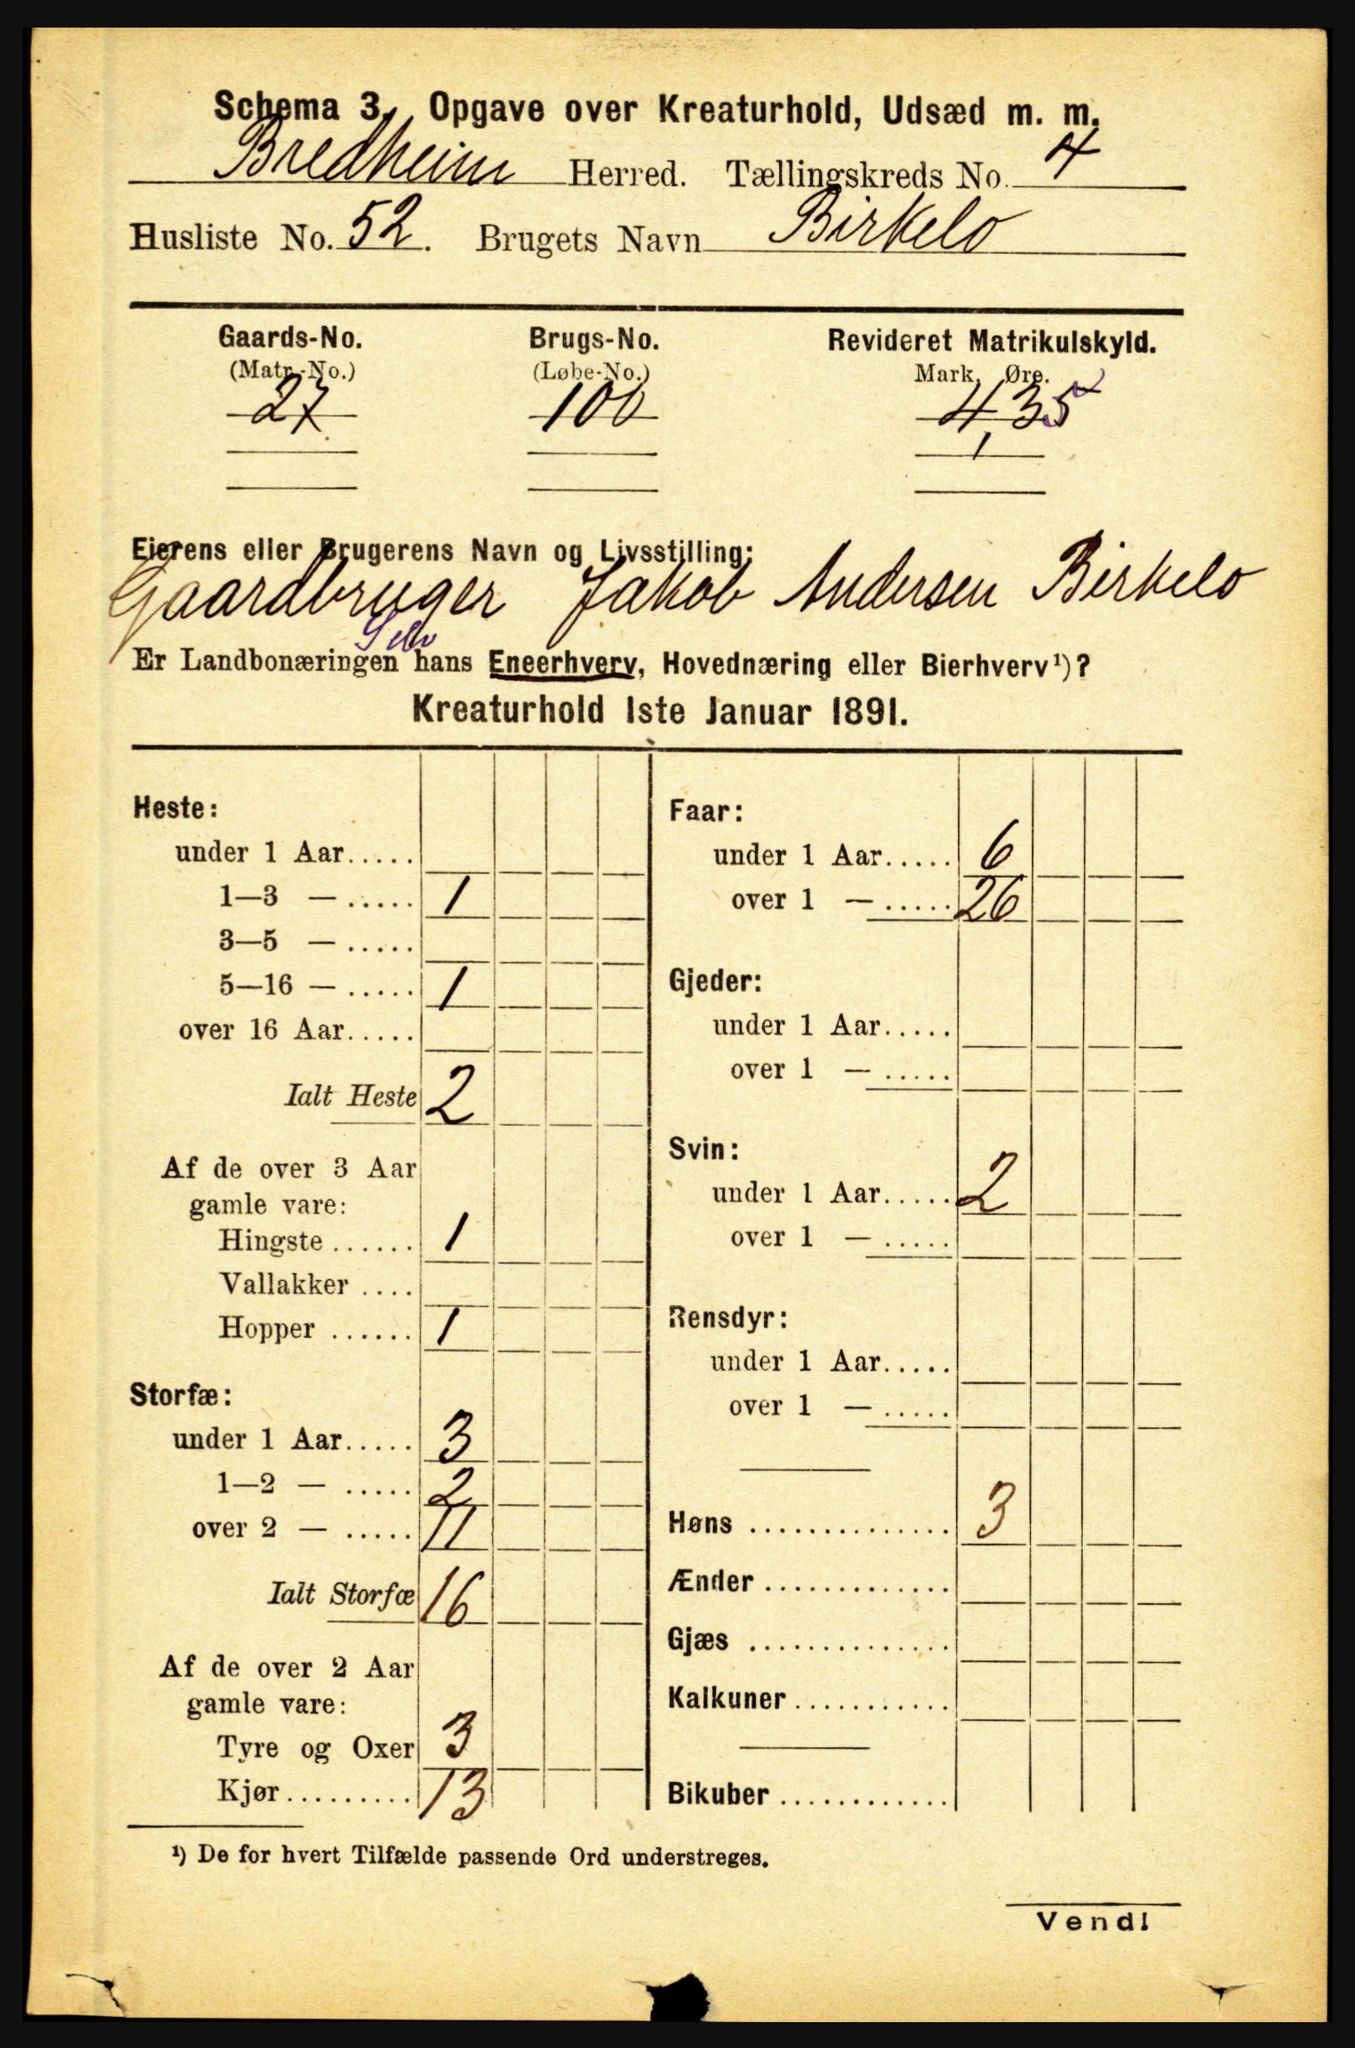 Schema 3. Opgave over Kreaturhold, Udsæd m. m.
Bredheim Herred. Tællingskreds No. 4
Husliste No. 52. Brugets Navn Birkelo
Gaards-No. Brugs-No. Revideret Matrikulskyld.
(Matr.-No.) (Løbe-No.) Mark. Øre.
27 100 4,35
Eierens eller Brugerens Navn og Livsstilling:
Gaardbruger Jakob Andersen Birkelo
Selv
Er Landbonæringen hans Eneerhverv, Hovednæring eller Bierhverv¹)?
Kreaturhold 1ste Januar 1891.
Heste:
under 1 Aar.....
1—3 — ..... 1
3—5 — .....
5—16 — ..... 1
over 16 Aar.....
Ialt Heste 2
Af de over 3 Aar
gamle vare:
Hingste ...... 1
Vallakker ....
Hopper ...... 1
Storfæ:
under 1 Aar..... 3
1—2 — ..... 2
over 2 — ..... 11
Ialt Storfæ 16
Af de over 2 Aar
gamle vare:
Tyre og Oxer 3
Kjør......... 13
Faar:
under 1 Aar..... 6
over 1 — ..... 26
Gjeder:
under 1 Aar.....
over 1 — .....
Svin:
under 1 Aar..... 2
over 1 — .....
Rensdyr:
under 1 Aar.....
over 1 — .....
Høns .............. 3
Ænder .............
Gjæs ..............
Kalkuner ...........
Bikuber ............
¹) De for hvert Tilfælde passende Ord understreges.
Vend!